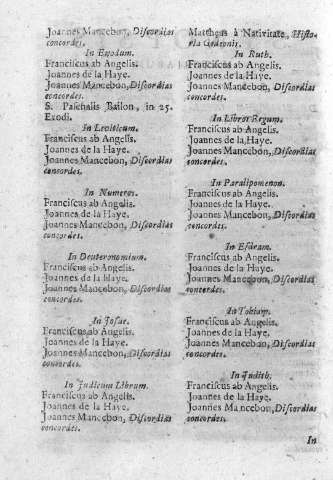 Joannes Mancebon, Discordias
concordes.
In Exodum.
Franciscus ab Angelis.
Joannes de la Haye.
Joannes Mancebon, Discordias
concordes.
S. Paschalis Bailon, in 25.
Exodi.
In Leviticum.
Franciscus ab Angelis.
Joannes de la Haye.
Joannes Mancebon, Discordias
concordes.
In Numeros.
Franciscus ab Angelis.
Joannes de la Haye.
Joannes Mancebon, Discordias
concordes.
In Deuteronomium.
Franciscus ab Angelis.
Joannes de la Haye.
Joannes Mancebon, Discordias
concordes.
In Josue.
Franciscus ab Angelis.
Joannes de la Haye.
Joannes Mancebon, Discordias
concordes.
In Judicum Librum.
Franciscus ab Angelis.
Joannes de la Haye.
Joannes Mancebon, Discordias
concordes.
Mattheus à Nativitate, Histo-
ria Gedeonis.
In Ruth.
Franciscus ab Angelis.
Joannes de la Haye.
Joannes Mancebon, Discordias
concordes.
In Libros Regum.
Franciscus ab Angelis.
Joannes de la Haye.
Joannes Mancebon, Discordias
concordes.
In Paralipomenon.
Franciscus ab Angelis.
Joannes de la Haye.
Joannes Mancebon, Discordias
concordes.
In Esdram.
Franciscus ab Angelis.
Joannes de la Haye.
Joannes Mancebon, Discordias
concordes.
In Tobiam.
Franciscus ab Angelis.
Joannes de la Haye.
Joannes Mancebon, Discordias
concordes.
In Judith.
Franciscus ab Angelis.
Joannes de la Haye.
Joannes Mancebon, Discordias
concordes.
In